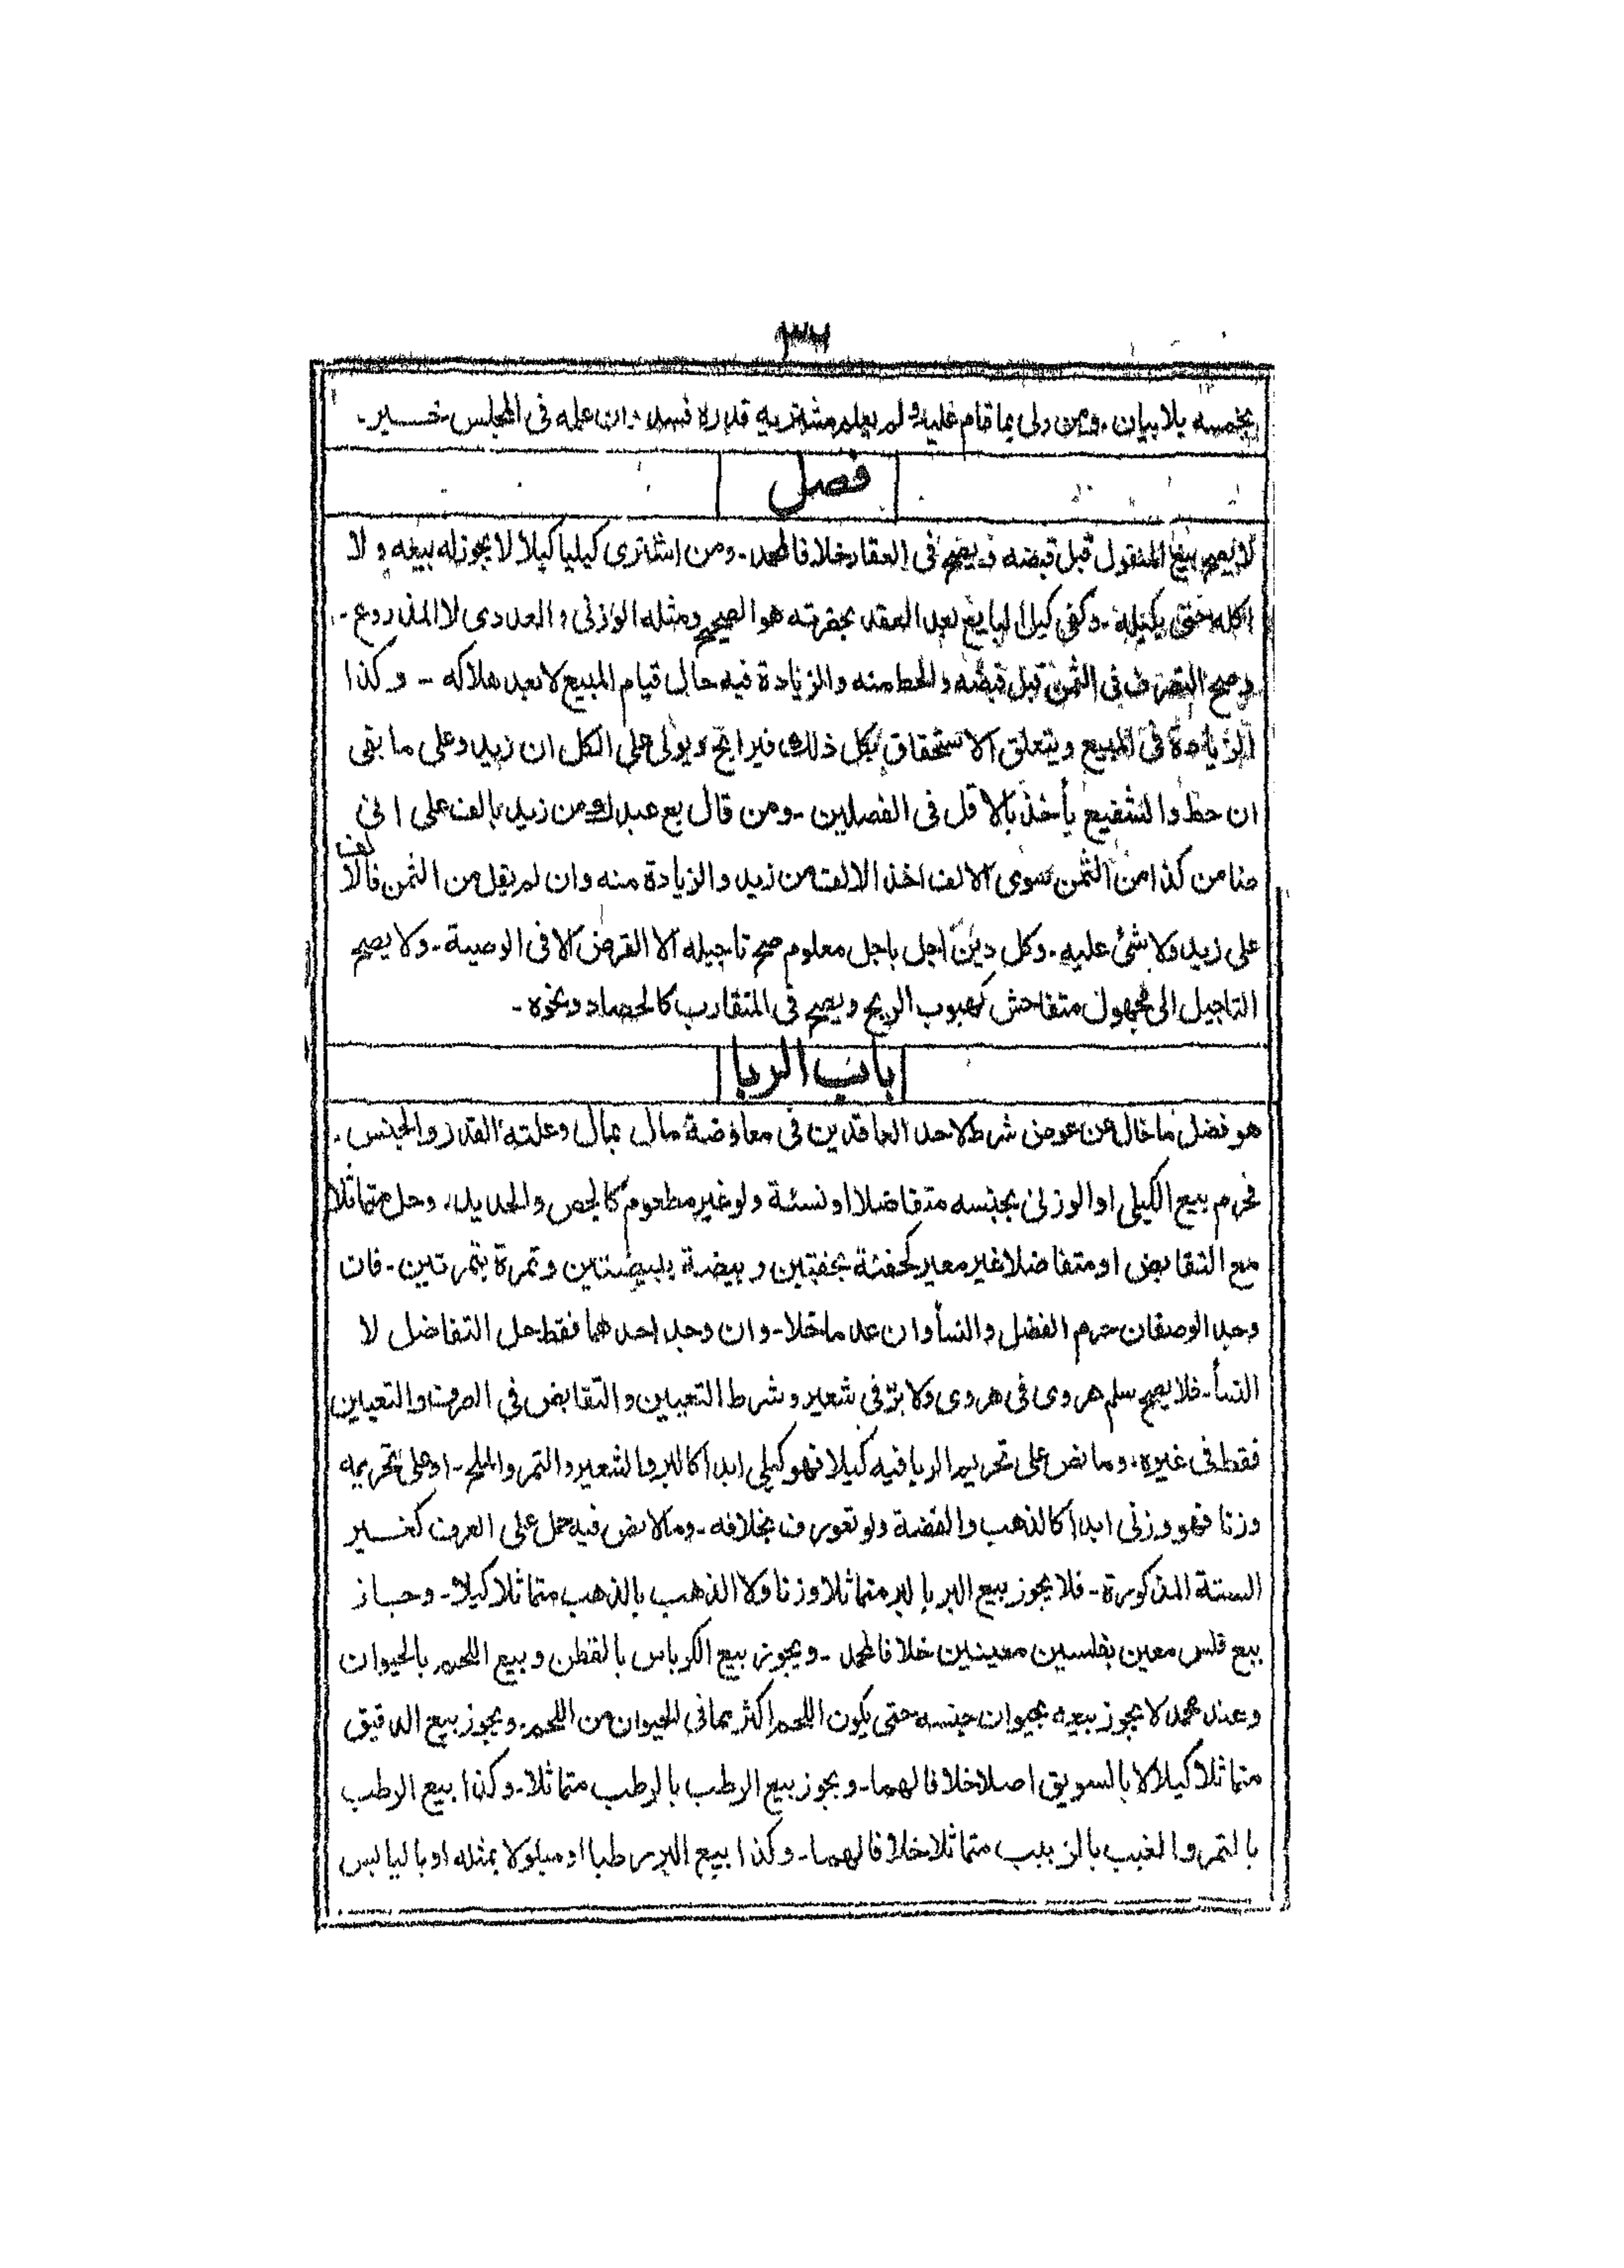 ٣٦
بخمسه بلا بيان - ومن ولى بما قام عليه ولم يعلم مشتريه قدره فسد - وان علمه فى المجلس خــــير -
فصل
لا يصح بيع المنقول قبل قبضه ويصح فى العقار خلافا لمحمد - ومن اشترى كيليا كيلا لا يجوز له بيعه ولا
اكله حتى يكيله - وكفى كيل البايع بعد العقد بحضرته هو الصحيح ومثله الوزنى والعددى لا المذروع -
وصح التصرف فى الثمن قبل قبضه والحط منه والزيادة فيه حال قيام المبيع لا بعد هلاكه - وكذا
الزيادة فى المبيع ويتعلق الاستحقاق بكل ذلك فيرابح ويولى على الكل ان زيد وعلى ما بقى
ان حط والشفيع يأخذ بالاقل فى الفصلين - ومن قال بع عبدك من زيد بالف على انى
ضامن كذا من الثمن سوى الالف اخذ الالف من زيد والزيادة منه وان لم يقل من الثمن فالالف
على زيد ولا شئ عليه - وكل دين اجل باجل معلوم صح تاجيله الا القرض الا فى الوصية - ولا يصح
التاجيل الى مجهول متفاحش كهبوب الريح ويصح فى المتقارب كالحصاد ونحوه -
باب الربا
هو فضل ما خال عن عوض شرط لاحد العاقدين فى معاوضة مال بمال وعلته القدر والجنس -
فحرم بيع الكيلى او الوزنى بجنسه متفاضلا او نسئة ولو غير مطعوم كالجص والحديد، وحل متماثلا
مع التقابض او متفاضلا غير معير كحفنة بحفنتين وبيضة ببيضتين وتمرة بتمرتين - فان
وجد الوصفان حرم الفضل والنسأ وان عدما حلا - وان وجد احدهما فقط حل التفاضل لا
النسأ - فلا يصح سلم هروى فى هروى ولا برّ فى شعير وشرط التعيين والتقابض فى الصرف والتعيين
فقط فى غيره، وما نص على تحريم الربا فيه كيلا فهو كيلى ابدا كالبر والشعير والتمر والملح - او على تحريمه
وزنا فهو وزنى ابدا كالذهب والفضة ولو تعورف بخلافه - وما لا نص فيه حمل على العرف كغــــير
الستة المذكورة - فلا يجوز بيع البر بالبر متماثلا وزنا ولا الذهب بالذهب متماثلا كيلا - وجاز
بيع فلس معين بفلسين معينين خلافا لمحمد - ويجوز بيع الكرباس بالقطن وبيع اللحم بالحيوان
وعند محمد لا يجوز بيعه بحيوان جنسه حتى يكون اللحم اكثر مما فى الحيوان من اللحم - ويجوز بيع الدقيق
متماثلا كيلا لا بالسويق اصلا خلافا لهما - ويجوز بيع الرطب بالرطب متماثلا - وكذا بيع الرطب
بالتمر والعنب بالزبيب متماثلا خلافا لهما - وكذا بيع البر رطبا او مبلولا بمثله او باليابس